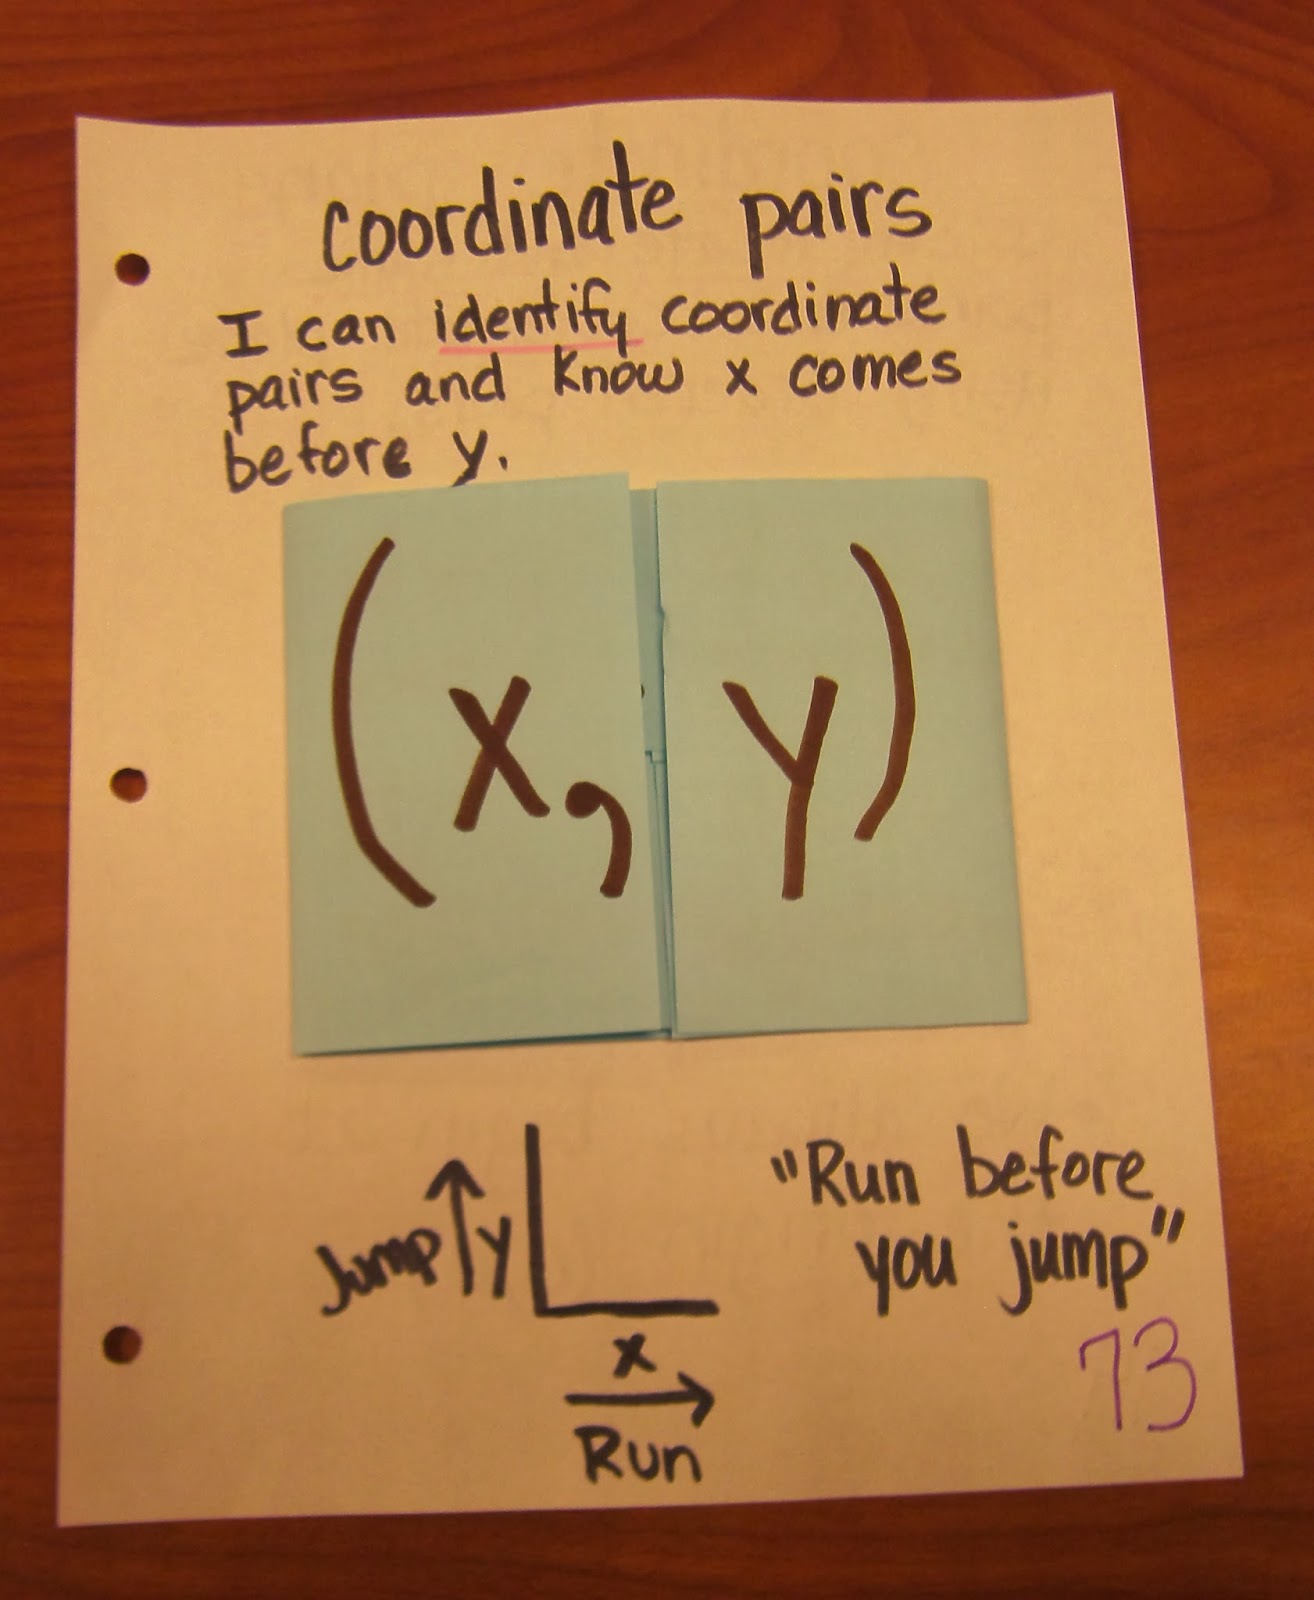 Coordinate pairs
I can identify coordinate
pairs and know x comes
before y.
(x, y)
"Run before
you jump"
Jump y
x
Run
73